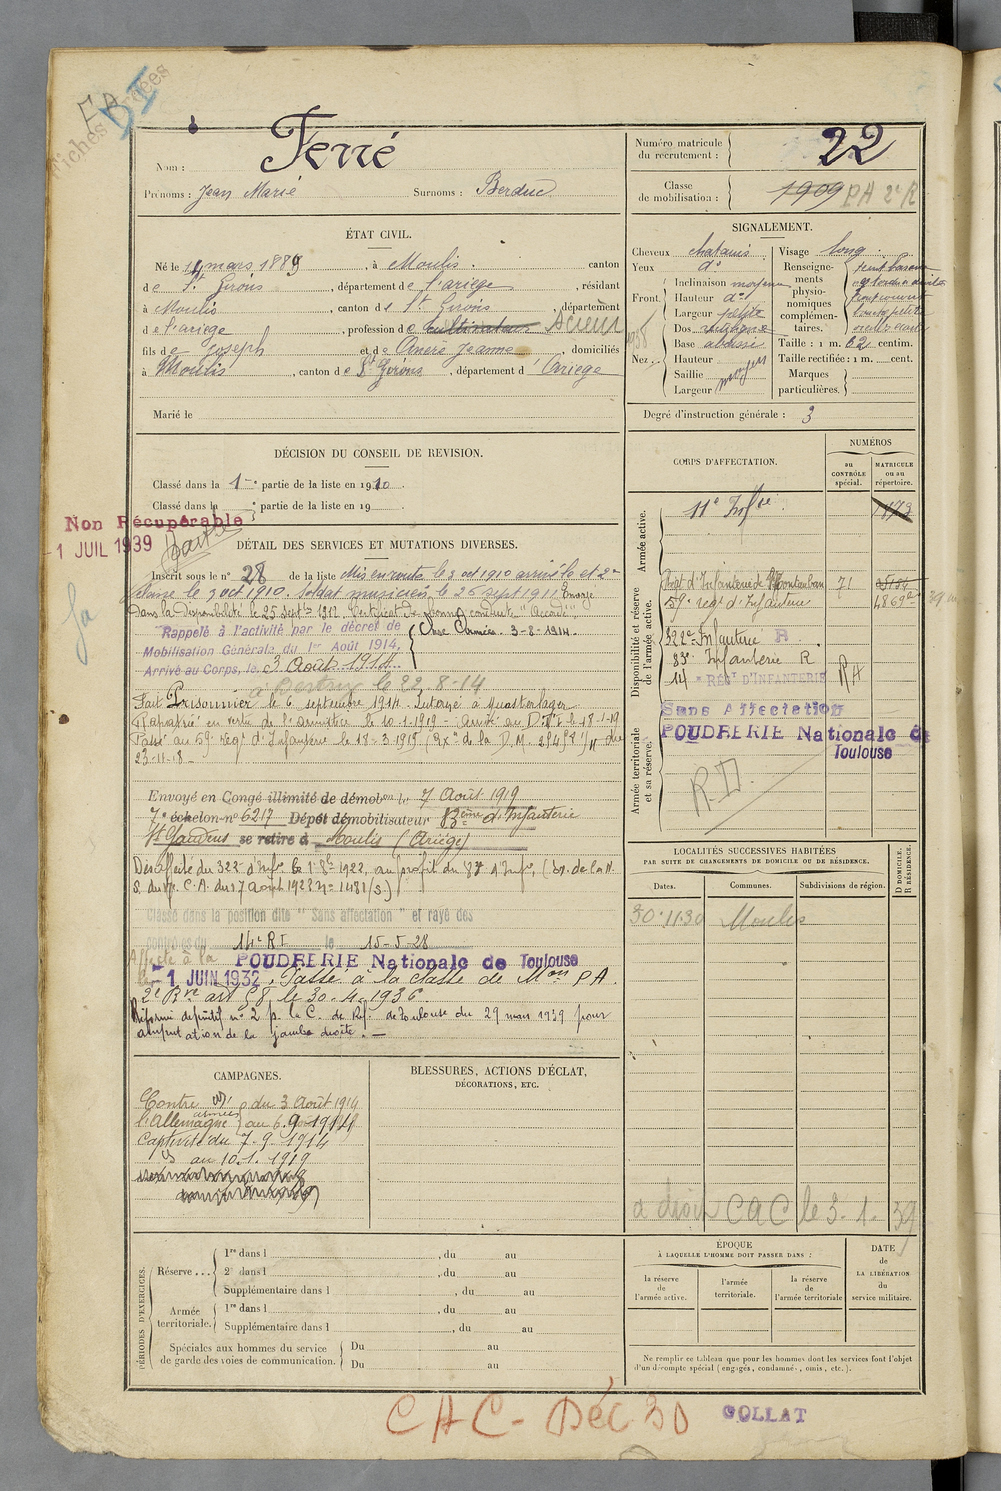 EA
Nom : Ferré
Prénoms : Jean Marie Surnoms : Berduc
Numéro matricule du recrutement : 22
Classe de mobilisation : 1909 PA 2e R
ÉTAT CIVIL.
Né le 14 mars 1889, à Moulis canton
de St Girons, département de l'ariège, résidant
à Moulis, canton de St Girons département
de l'ariège, profession de cultivateur Scieur
fils de Joseph et de Jeanne, domiciliés
à Moulis, canton de St Girons, département d'Ariège
Marié le
SIGNALEMENT.
Cheveux chatains
Yeux do
Front. Inclinaison moyenne
Hauteur do
Largeur petite
Nez. Dos
Base
Hauteur
Saillie moyen
Largeur
Visage long
Renseignements physionomiques complémentaires.
Taille : 1 m. 62 centim.
Taille rectifiée : 1 m. cent.
Marques particulières.
Degré d'instruction générale : 3
DÉCISION DU CONSEIL DE REVISION.
Classé dans la 1re partie de la liste en 1910
Classé dans la partie de la liste en 19
Non Récupérable
1 JUIL 1939
DÉTAIL DES SERVICES ET MUTATIONS DIVERSES.
Inscrit sous le no 28 de la liste Mis en route le 3 oct 1910 arrivé le et 2e
classe le 3 oct 1910. Soldat musicien le 26 sept 1911 Envoyé
Dans la disponibilité le 25 septbre 1912. Certificat de bonne conduite "accordé"
Rappelé à l'activité par le décret de
Mobilisation Générale du 1er Août 1914,
Arrivé au Corps, le 3 Août 1914.
Aux Armées 3-8-1914.
le 22-8-14
Fait Prisonnier le 6 septembre 1914. Interné à
Rapatrié en vertu de l'armistice le 10-1-1919 - arrivé au D. le 18-1-19
Passé au 59e regt d'Infanterie le 18-3-1919 (Don de la D.M. du
23-11-18 -
Envoyé en Congé illimité de démobon le 7 Août 1919
7e échelon no 6217 Dépôt démobilisateur 83ème d'Infanterie
St Gaudens se retire à Moulis (Ariège)
Désaffecté du 322e d'Infie le 1er 8bre 1922, au profit du 83e d'Infie
Classé dans la position dite "Sans affectation" et rayé des
contrôles du 14e RI le 15-5-28
Affecté à la POUDRERIE Nationale de Toulouse
le - 1 JUIN 1932. Passé à la classe de Mon PA.
2e Rve art 58 le 30-4-1936.
Réformé définitif no 2 p. la C. de Réf. de Toulouse du 29 mars 1939 pour
amputation de la jambe droite. -
CORPS D'AFFECTATION.
NUMÉROS
au CONTRÔLE spécial.
MATRICULE ou au répertoire.
Armée active.
11e Infie 1873
Disponibilité et réserve de l'armée active.
Regt d'Infanterie de Montauban 71
59e regt d'Infanterie
322e Infanterie R
83e Infanterie R.
14e RÉGt D'INFANTERIE RA
Sans Affectation
POUDRERIE Nationale de
Toulouse
Armée territoriale et sa réserve.
R.D.
LOCALITÉS SUCCESSIVES HABITÉES
PAR SUITE DE CHANGEMENTS DE DOMICILE OU DE RÉSIDENCE.
Dates. Communes. Subdivisions de région. D DOMICILE. R RÉSIDENCE.
30-11-30 Moulis
a droit CAC le 3-1-39
CAMPAGNES.
Contre du 3 Août 1914
l'Allemagne au 6-9-1914
Captivité du 7-9-1914
au 10-1-1919
BLESSURES, ACTIONS D'ÉCLAT,
DÉCORATIONS, ETC.
PÉRIODES D'EXERCICES.
Réserve... 1re dans l , du au
2e dans l , du au
Supplémentaire dans l , du au
Armée territoriale. 1re dans l , du au
Supplémentaire dans l , du au
Spéciales aux hommes du service de garde des voies de communication. Du au
Du au
ÉPOQUE
À LAQUELLE L'HOMME DOIT PASSER DANS :
la réserve de l'armée active.
l'armée territoriale.
la réserve de l'armée territoriale
DATE de LA LIBÉRATION du service militaire.
Ne remplir ce tableau que pour les hommes dont les services font l'objet
d'un décompte spécial (engagés, condamnés, omis, etc.).
CAC - Déc 30
GOLLAT